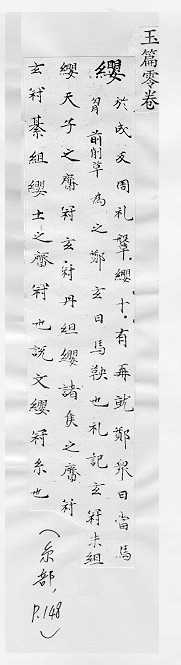 玉篇零卷
纓
於成反周礼鞶纓十有再就鄭眾曰當馬
胷前削草為之鄭玄曰馬鞅也礼記玄冠朱組
纓天子之齋冠玄冠丹組纓諸侯之齋冠
玄冠綦組纓士之齋冠也說文纓冠糸也
(糸部, P.148)